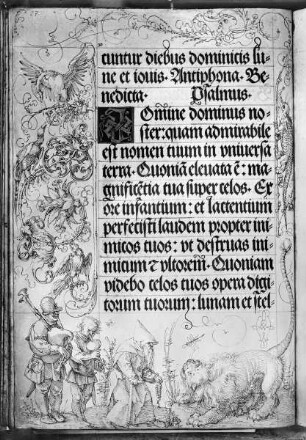 cuntur diebus dominicis lu⸗
ne et iouis. Antiphona. Be⸗
nedicta. Psalmus.
Domine dominus no⸗
ster: quam admirabile
est nomen tuum in vniuersa
terra. Quoniā eleuata ē: ma⸗
gnificētia tua super celos. Ex
ore infantium: et lactentium
perfecisti laudem propter ini
micos tuos: vt destruas ini⸗
micum ⁊ vltorem. Quoniam
videbo celos tuos opera digi
torum tuorum: lunam et stel